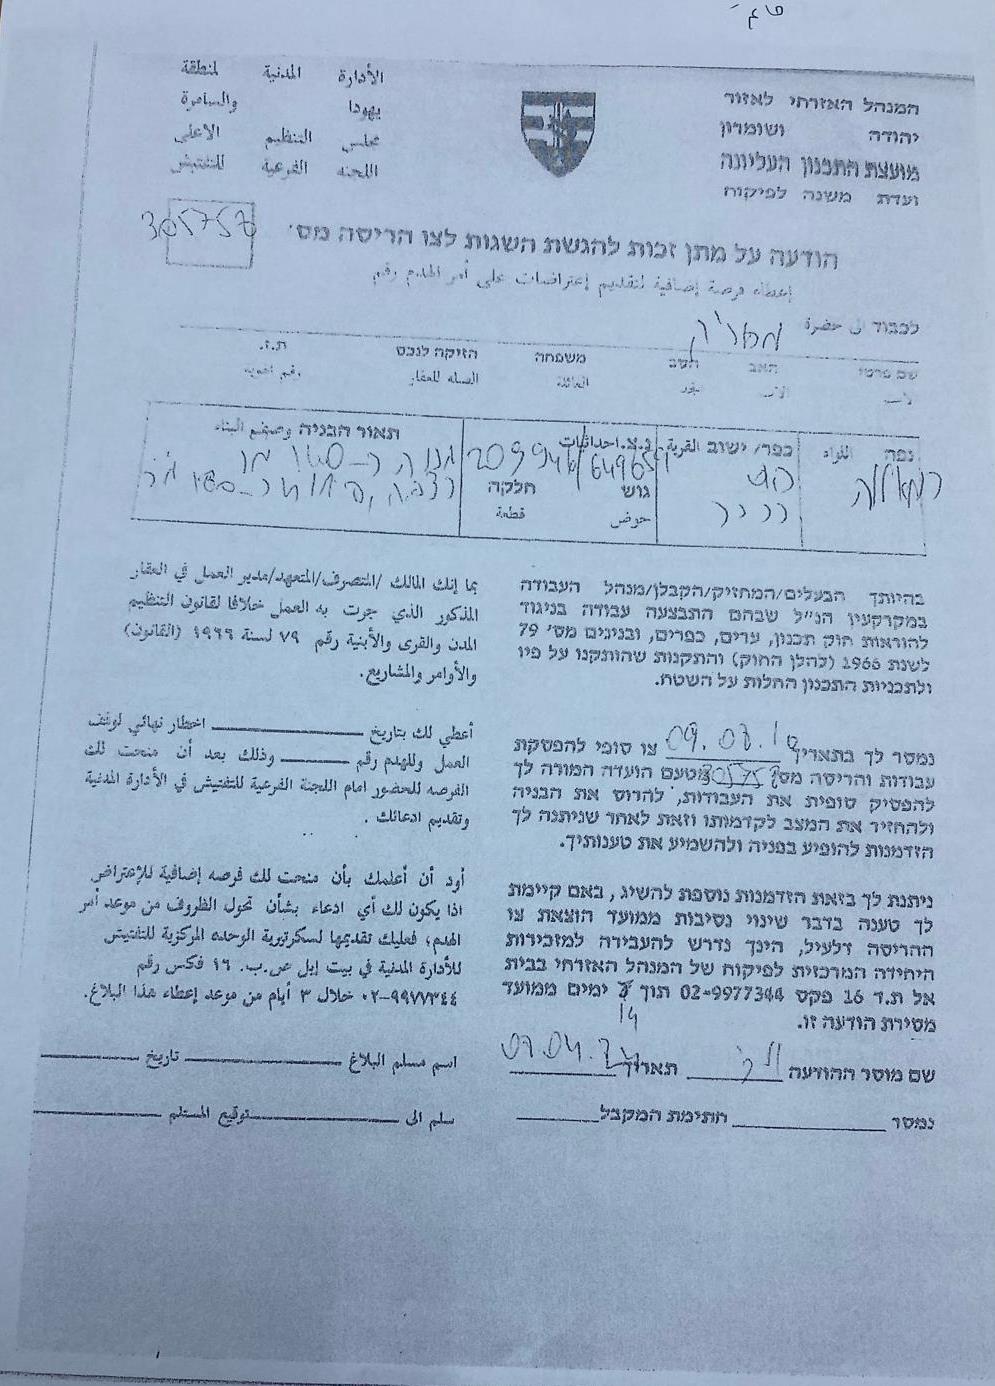 המנהל האזרחי לאזור
יהודה ושומרון
מועצת התכנון העליונה
ועדת משנה לפיקוח
الأدارة المدنية لمنطقة
يهودا والسامرة
مجلس التنظيم الاعلى
اللجنه الفرعية للتفتيش
הודעה על מתן זכות להגשת השגות לצו הריסה מס'
305757
إعطاء فرصة إضافية لتقديم إعتراضات على أمر الهدم رقم
לכבוד الى حضرة
שם פרטי האב הסב משפחה הזיקה לנכס ת.ז.
الأب العائلة الصله للعقار رقم الهوية
נפה اللواء כפר/ ישוב القرية נ.צ. احداثيات תאור הבניה وصفهم البناء
רמאללה
209946/649651
גוש חלקה
حوض قطعة
בהיותך הבעלים/המחזיק/הקבלן/מנהל העבודה
במקרקעין הנ"ל שבהם התבצעה עבודה בניגוד
להוראות חוק תכנון, ערים, כפרים, ובנינים מס' 79
לשנת 1966 (להלן החוק) והתקנות שהותקנו על פיו
ולתכניות התכנון החלות על השטח.
נמסר לך בתאריך 09.08.16 צו סופי להפסקת
עבודות והריסה מס' 305757 מטעם הועדה המורה לך
להפסיק סופית את העבודות, להרוס את הבניה
ולהחזיר את המצב לקדמותו וזאת לאחר שניתנה לך
הזדמנות להופיע בפניה ולהשמיע את טענותיך.
ניתנת לך בזאת הזדמנות נוספת להשיג, באם קיימת
לך טענה בדבר שינוי נסיבות ממועד הוצאת צו
ההריסה דלעיל, הינך נדרש להעבירה למזכירות
היחידה המרכזית לפיקוח של המנהל האזרחי בבית
אל ת.ד 16 פקס 02-9977344 תוך ימים ממועד
14
מסירת הודעה זו.
שם מוסר ההודעה תאריך
נמסר חתימת המקבל
بما إنك المالك /المتصرف/المتعهد/مدير العمل في العقار
المذكور الذي جرت به العمل خلافا لقانون التنظيم
المدن والقرى والأبنية رقم ٧٩ لسنة ١٩٦٦ (القانون)
والأوامر والمشاريع.
أعطي لك بتاريخ اخطار نهائي لوقف
العمل وللهدم رقم وذلك بعد أن منحت لك
الفرصه للحضور امام اللجنة الفرعية للتفتيش في الأدارة المدنية
وتقديم ادعائك .
أود أن أعلمك بأن منحت لك فرصه إضافية للإعتراض
اذا يكون لك أي ادعاء بشأن تحول الظروف من موعد أمر
الهدم، فعليك تقديمها لسكرتيرية الوحده المركزية للتفتيش
للأدارة المدنية في بيت إيل ص.ب. ١٦ فكس رقم
٠٢-٩٩٧٧٣٤٤ خلال ٣ أيام من موعد إعطاء هذا البلاغ.
اسم مسلم البلاغ تاريخ
سلم الى توقيع المستلم